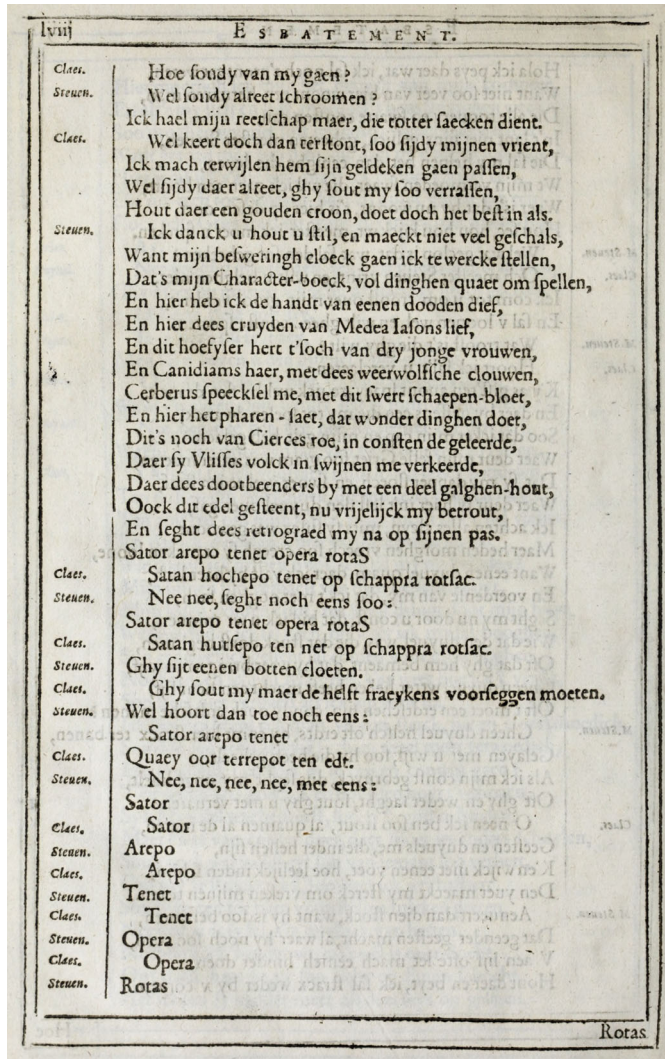 lviij
ESBATEMENT.
Claes. Hoe soudy van my gaen?
Steuen. Wel soudy alreet schroomen?
Ick hael mijn reetschap maer, die totter saecken dient.
Claes. Wel keert doch dan terstont, soo sijdy mijnen vrient,
Ick mach terwijlen hem sijn geldeken gaen passen,
Wel sijdy daer alreet, ghy sout my soo verrassen,
Hout daer een gouden croon, doet doch het best in als.
Steuen. Ick danck u hout u stil, en maeckt niet veel geschals,
Want mijn besweringh cloeck gaen ick te wercke stellen,
Dat's mijn Character-boeck, vol dinghen quaet om spellen,
En hier heb ick de handt van eenen dooden dief,
En hier dees cruyden van Medea Iasons lief,
En dit hoefyser hert t'soch van dry jonge vrouwen,
En Canidiams haer, met dees weerwolfsche clouwen,
Cerberus speecksel me, met dit swert schaepen-bloet,
En hier het pharen-saet, dat wonder dinghen doet,
Dit's noch van Cierces roe, in consten de geleerde,
Daer sy Vlisses volck in swijnen me verkeerde,
Daer dees dootbeenders by met een deel galghen-hout,
Oock dit edel gesteent, nu vrijelijck my betrout,
En seght dees retrograed my na op sijnen pas.
Sator arepo tenet opera rotaS
Claes. Satan hochepo tenet op schappra rotsac.
Steuen. Nee nee, seght noch eens soo:
Sator arepo tenet opera rotaS
Claes. Satan hutsepo ten net op schappra rotsac.
Steuen. Ghy sijt eenen botten cloeten.
Claes. Ghy sout my maer de helft fraeykens voorseggen moeten.
Steuen. Wel hoort dan toe noch eens:
Sator arepo tenet
Claes. Quaey oor terrepot ten edt.
Steuen. Nee, nee, nee, nee, met eens:
Sator
Claes. Sator
Steuen. Arepo
Claes. Arepo
Steuen. Tenet
Claes. Tenet
Steuen. Opera
Claes. Opera
Steuen. Rotas
Rotas